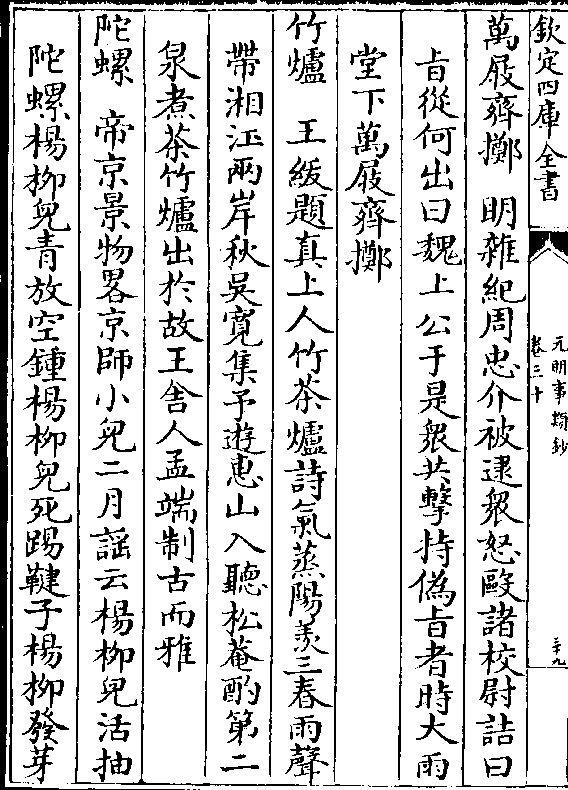 欽定四庫全書
元明事類鈔
卷三十
三十九
萬屐齊擲　明雜紀周忠介被逮衆怒毆諸校尉詰曰
㫖從何出曰魏上公于是衆共擊持偽㫖者時大雨
堂下萬屐齊擲
竹爐　王紱題真上人竹茶爐詩氣蒸陽羨三春雨聲
帶湘江兩岸秋吳寛集予遊惠山入聽松菴酌第二
泉煮茶竹爐出於故王舍人孟端制古而雅
陀螺　帝京景物畧京師小兒二月謡云楊柳兒活抽
陀螺楊柳兒青放空鍾楊柳兒死踢鞬子楊柳發芽